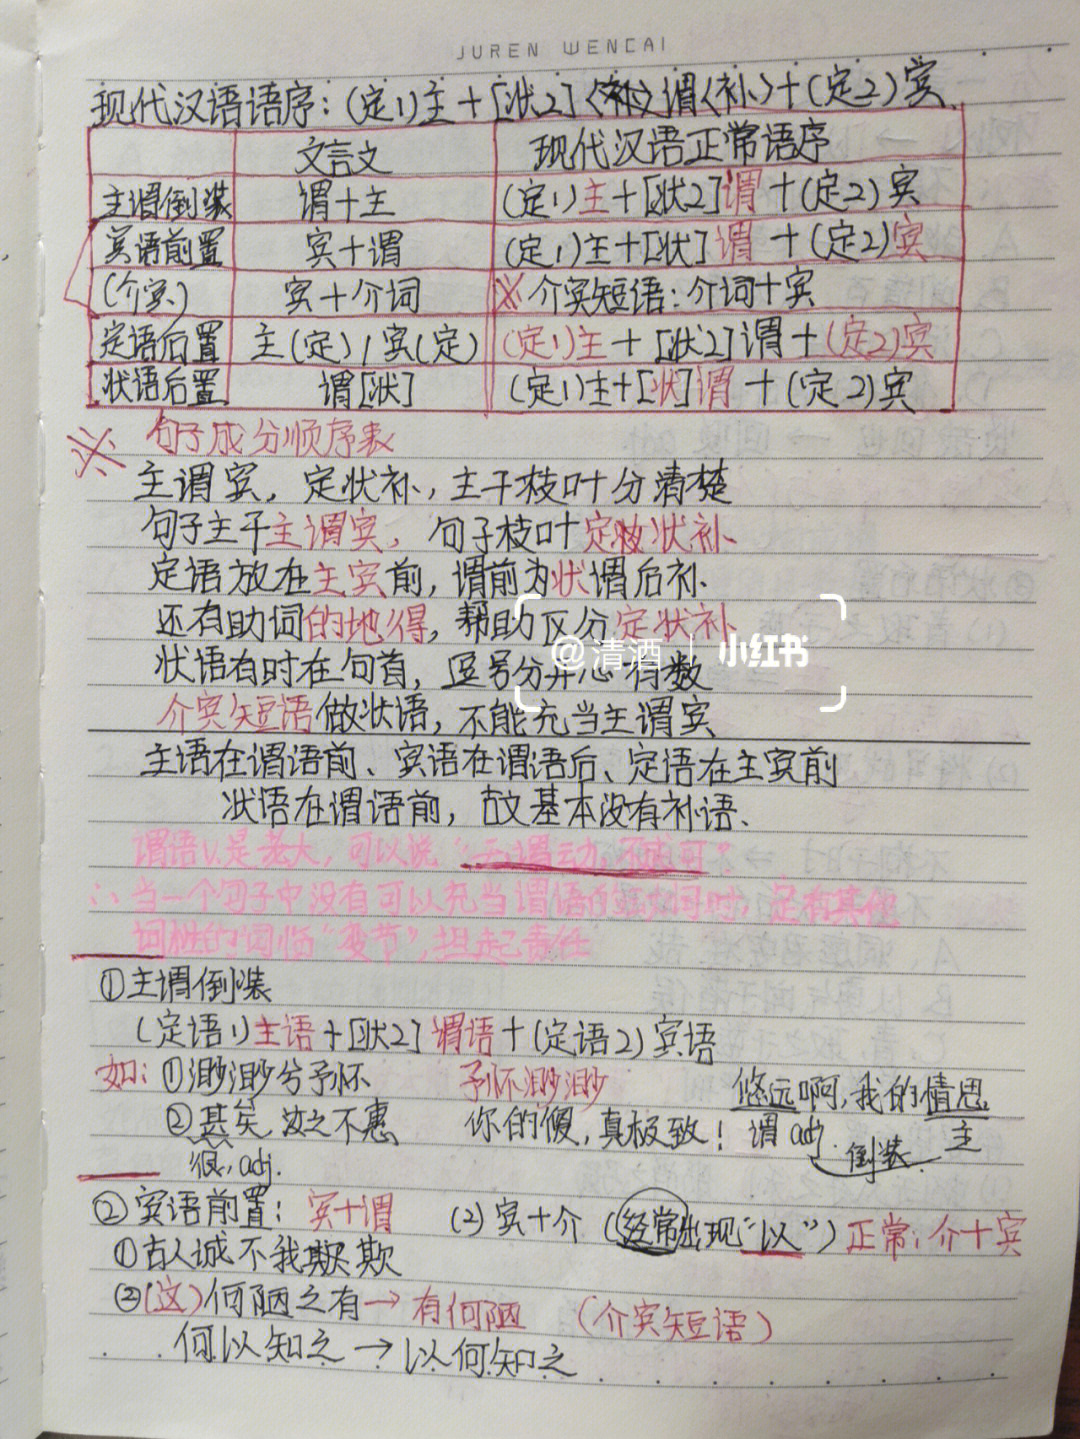 JUREN WENCAI
现代汉语语序：(定1)主+[状2]<补>谓<补>+(定2)宾
文言文 现代汉语正常语序
主谓倒装 谓+主 (定1)主+[状2]谓+(定2)宾
宾语前置 宾+谓 (定1)主+[状]谓+(定2)宾
(介宾) 宾+介词 ※介宾短语：介词+宾
定语后置 主(定)/宾(定) (定1)主+[状2]谓+(定2)宾
状语后置 谓[状] (定1)主+[状]谓+(定2)宾
※ 句子成分顺序表
主谓宾，定状补，主干枝叶分清楚
句子主干主谓宾，句子枝叶定状补
定语放在主宾前，谓前为状谓后补
还有助词的地得，帮助区分定状补
@清酒 | 小红书
状语有时在句首，逗号分开心有数
介宾短语做状语，不能充当主谓宾
主语在谓语前、宾语在谓语后、定语在主宾前
状语在谓语前，古文基本没有补语、
谓语v.是老大，可以说“无谓动，不成句？
∴当一个句子中没有可以充当谓语的动词时，定有其他
词性的词临“变节”，担起责任
①主谓倒装
(定语1)主语+[状2]谓语+(定语2)宾语
如：①渺渺兮予怀 予怀渺渺 悠远啊，我的情思
②甚矣 汝之不惠 你的傻，真极致！ 谓adj. 倒装 主
很，adj.
②宾语前置：宾+谓 (2)宾+介 (经常出现“以”) 正常：介+宾
①古人诚不我欺
②(这)何陋之有→有何陋 (介宾短语)
何以知之→以何知之